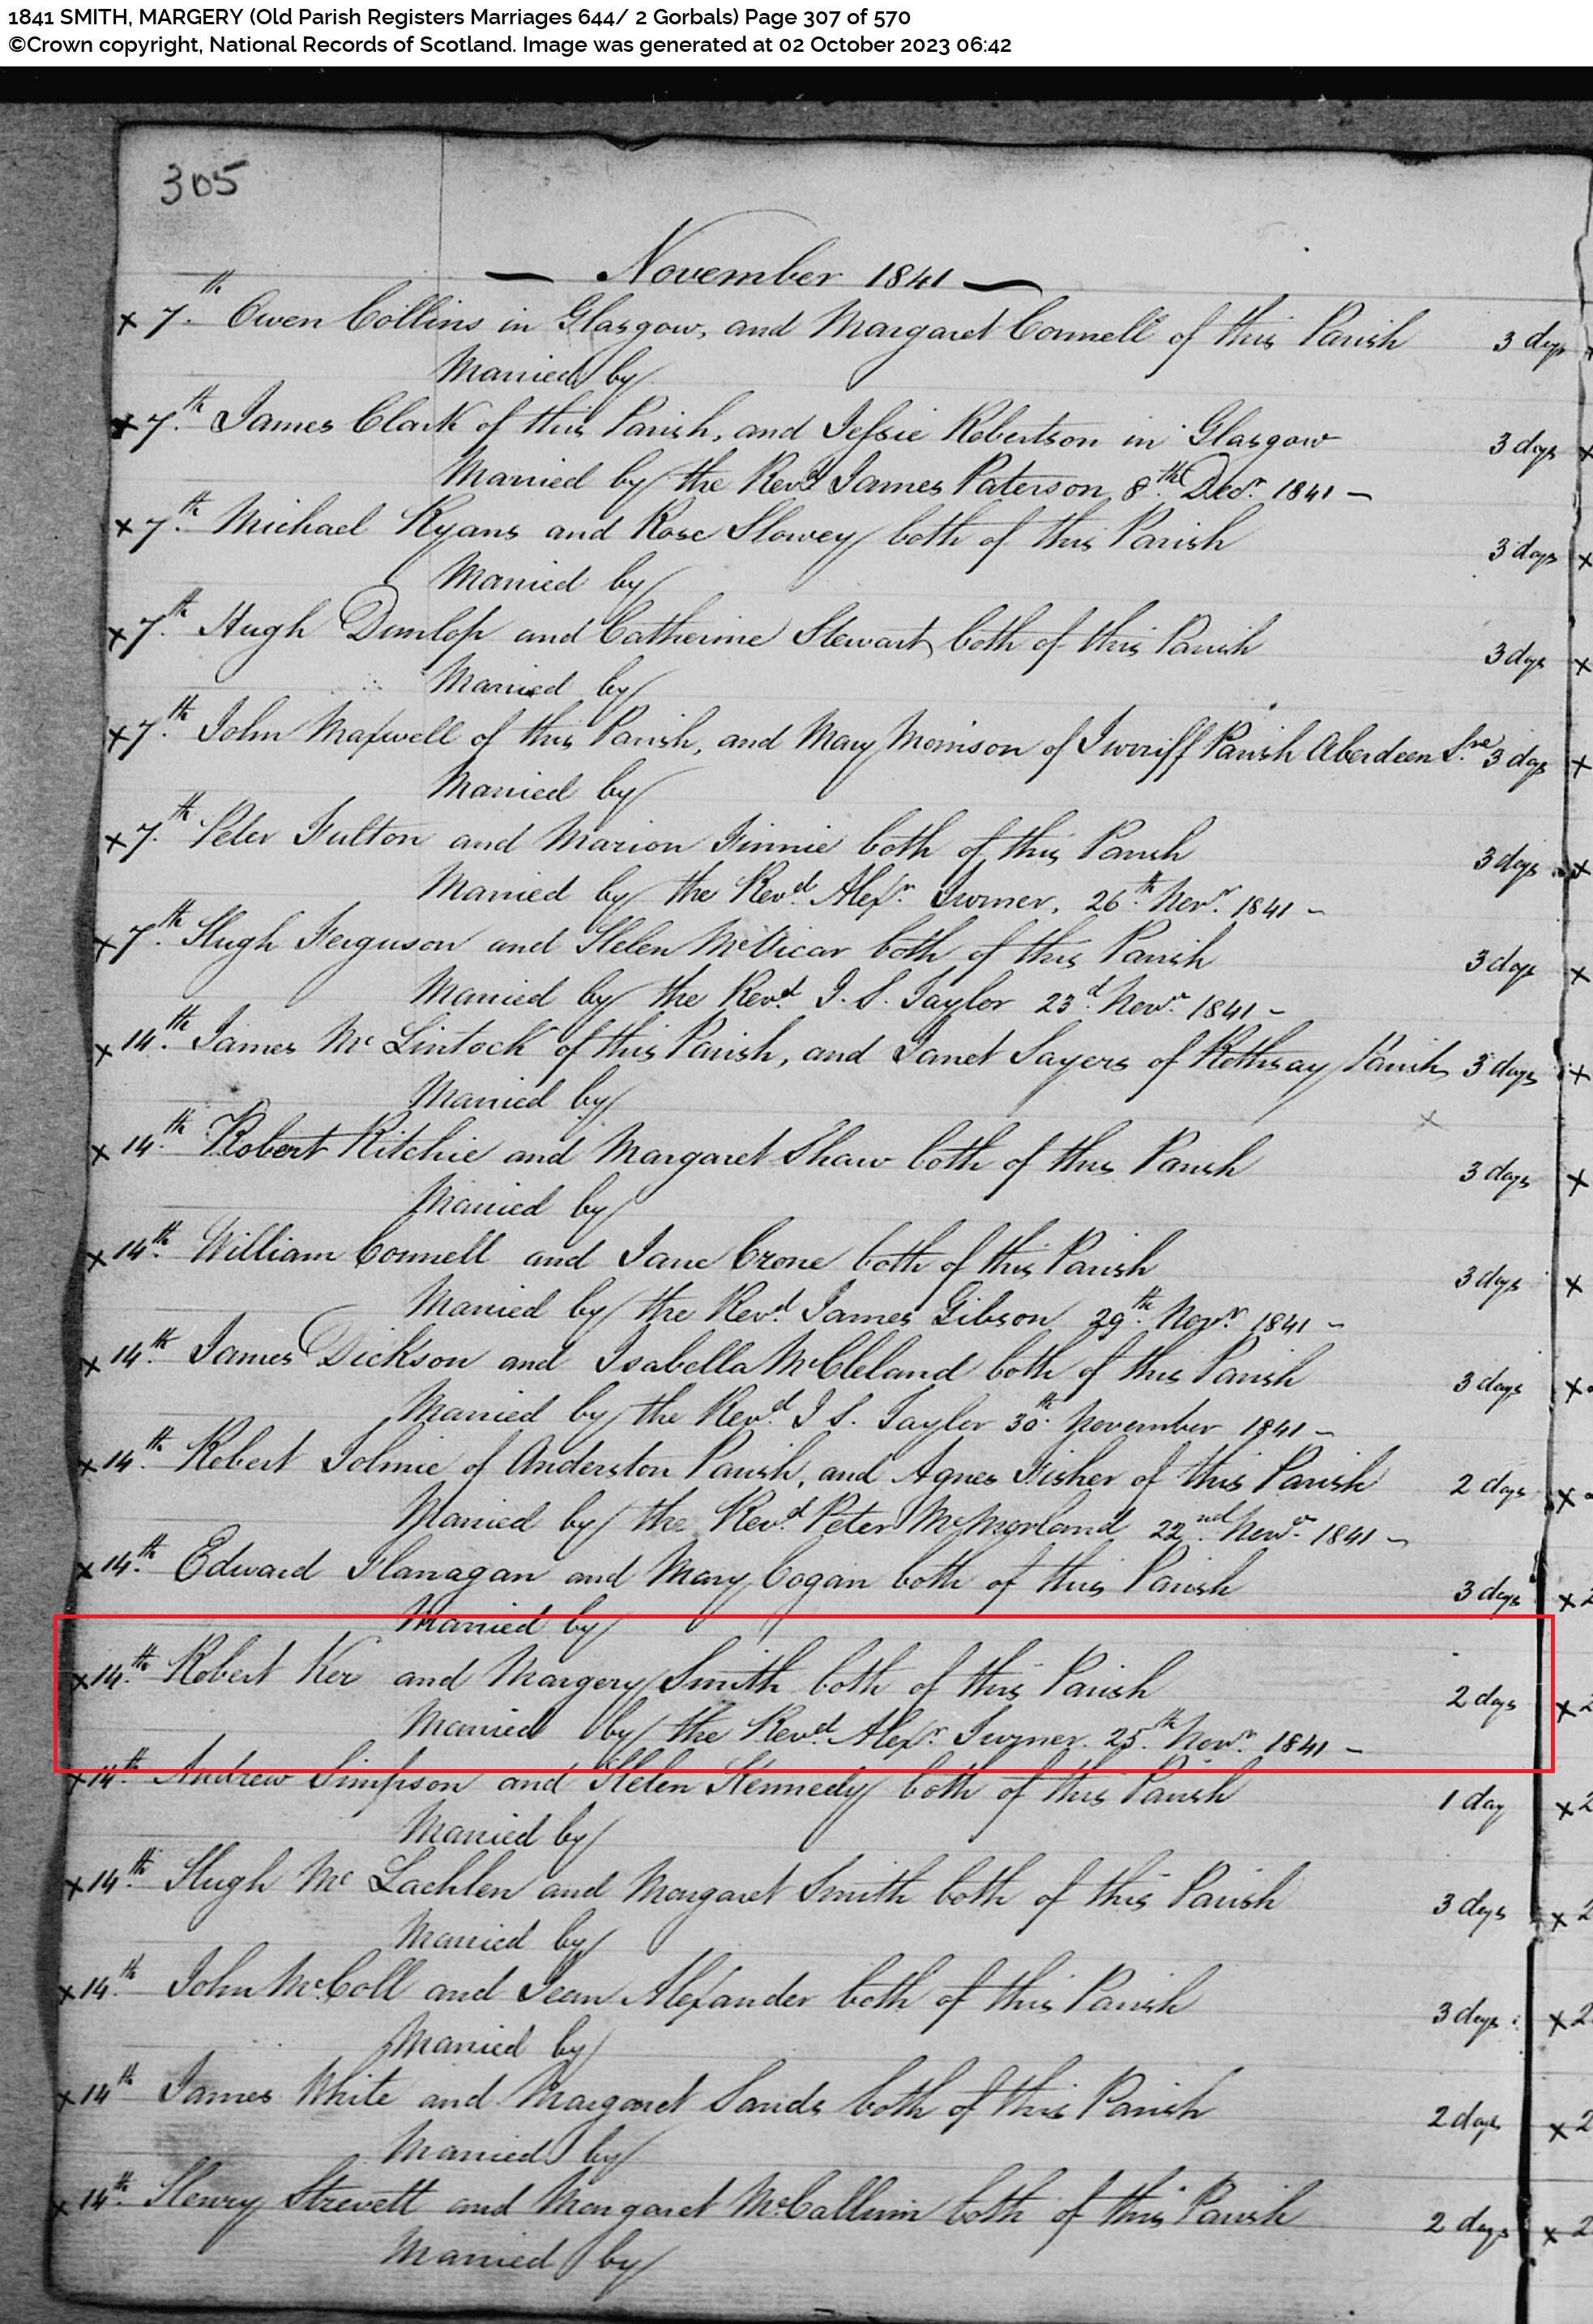 1841 SMITH, MARGERY (Old Parish Registers Marriages 644/ 2 Gorbals) Page 307 of 570
©Crown copyright, National Records of Scotland. Image was generated at 02 October 2023 06:42
305
— November 1841 —
x 7th Owen Collins in Glasgow, and Margaret Connell of this Parish 3 days
Married by
x 7th James Clark of this Parish, and Jessie Robertson in Glasgow 3 days x
Married by the Revd James Paterson 8th Decr 1841 –
x 7th Michael Ryans and Rose Slowey both of this Parish 3 days x
Married by
x 7th Hugh Dunlop and Catherine Stewart both of this Parish 3 days x
Married by
x 7th John Maxwell of this Parish, and Mary Morrison of Turriff Parish Aberdeen Sre 3 days x
Married by
x 7th Peter Fulton and Marion Finnie both of this Parish 3 days x
Married by the Revd Alexr Turner, 26th Novr 1841 –
x 7th Hugh Ferguson and Helen McVicar both of this Parish 3 days x
Married by the Revd J. S. Taylor 23d Novr 1841 –
x 14th James Mc Lintock of this Parish, and Janet Sayers of Rothsay Parish 3 days x
Married by x
x 14th Robert Ritchie and Margaret Shaw both of this Parish 3 days x
Married by
x 14th William Connell and Jane Crone both of this Parish 3 days x
Married by the Revd James Gibson 29th Novr 1841 –
x 14th James Dickson and Isabella McCleland both of this Parish 3 days x
Married by the Revd J S. Taylor 30th November 1841 –
x 14th Robert Tolmie of Anderston Parish, and Agnes Fisher of this Parish 2 days x
Married by the Revd Peter McMorland 22nd Novr 1841 –
x 14th Edward Flanagan and Mary Cogan both of this Parish 3 days x 2
Married by
x 14th Robert Ker and Margery Smith both of this Parish 2 days x 2
Married by the Revd Alexr Turner 25th Novr 1841 –
x 14th Andrew Simpson and Helen Kennedy both of this Parish 1 day x 2
Married by
x 14th Hugh Mc Lachlen and Margaret Smith both of this Parish 3 days x 2
Married by
x 14th John McColl and Jean Alexander both of this Parish 3 days x 2
Married by
x 14th James White and Margaret Sands both of this Parish 2 days x 2
Married by
x 14th Henry Strevett and Margaret McCallum both of this Parish 2 days x 2
Married by